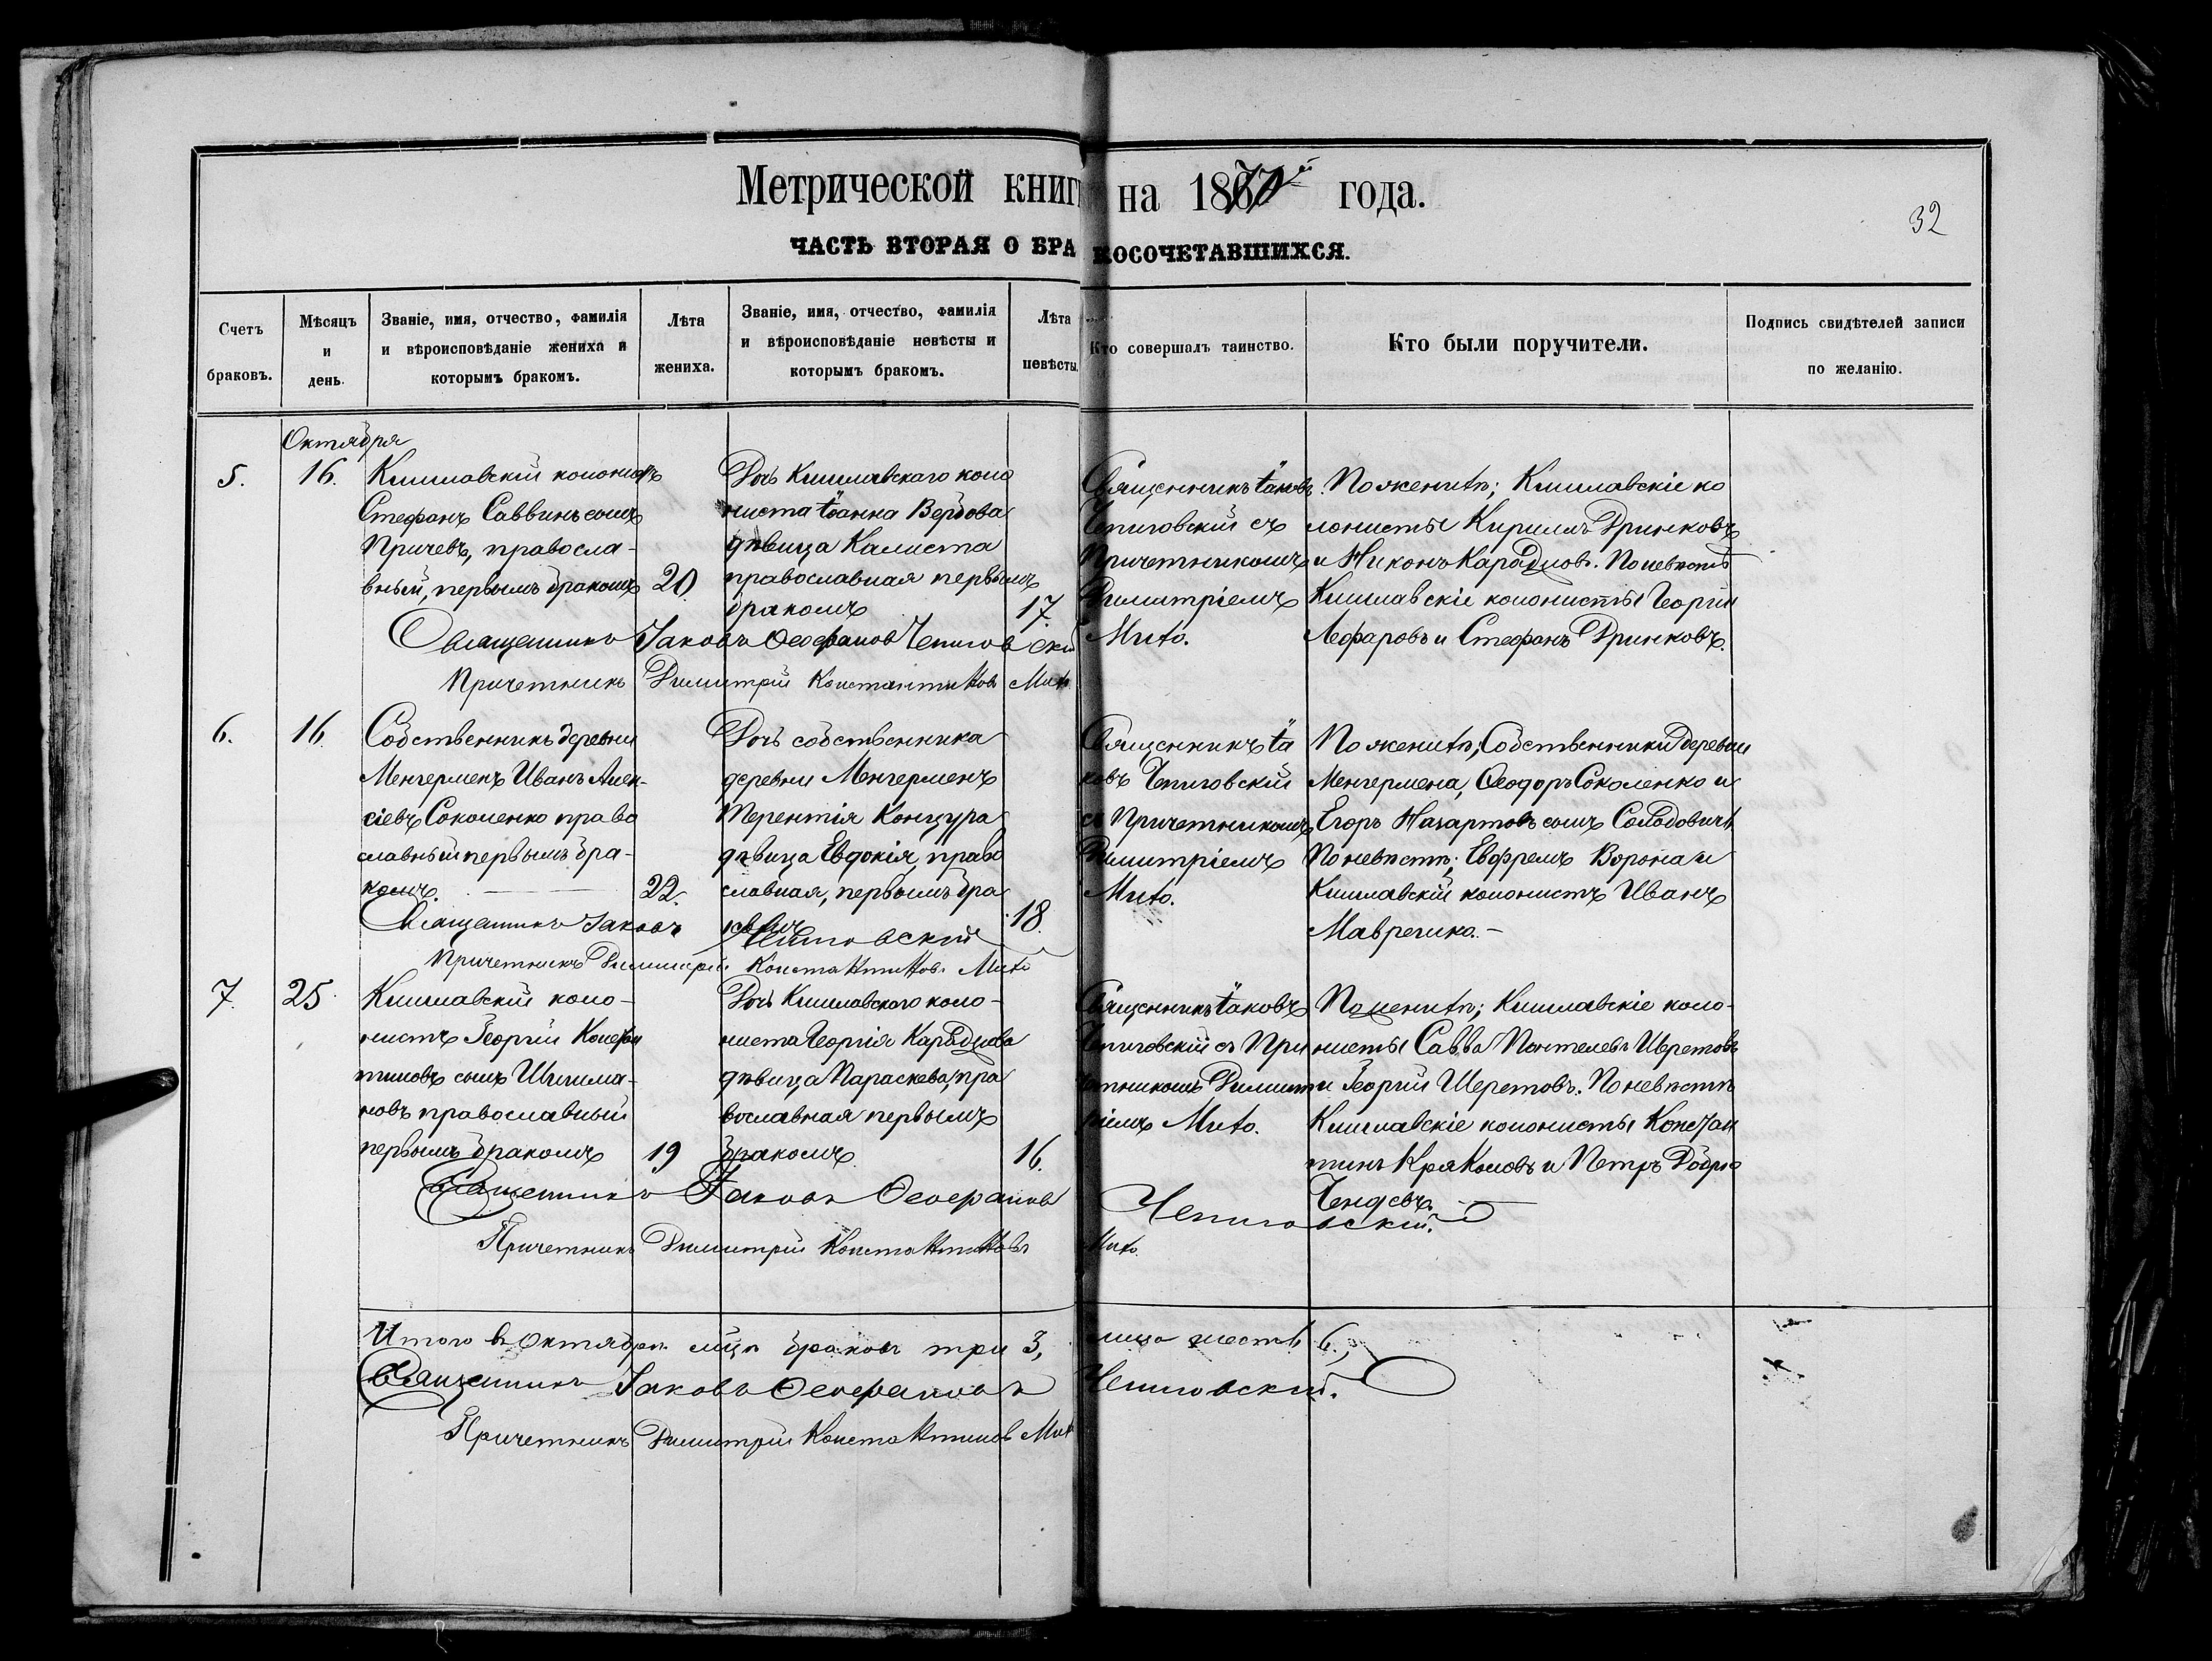 Метрической книги на 1870 года.
32
ЧАСТЬ ВТОРАЯ О БРАКОСОЧЕТАВШИХСЯ.
Счетъ браковъ.
Мѣсяцъ и день.
Званіе, имя, отчество, фамилія и вѣроисповѣданіе жениха и которымъ бракомъ.
Лѣта жениха.
Званіе, имя, отчество, фамилія и вѣроисповѣданіе невѣсты и которымъ бракомъ.
Лѣта невѣсты.
Кто совершалъ таинство.
Кто были поручители.
Подпись свидѣтелей записи по желанію.
Октября
5.
16.
Кишлавскій колонистъ
Стефанъ Саввинъ сынъ
Причевъ, правосла-
вный, первымъ бракомъ
20.
Дочь Кишлавскаго коло
ниста Іоанна Вербова
дѣвица Калиста
православная первымъ
бракомъ
17.
Священникъ Іаковъ
Чепиговскій съ
Причетникомъ
Димитріемъ
Мито.
По женихѣ; Кишлавскіе ко
лонисты Кириллъ Дринковъ
и Никонъ Карадиовъ. По невѣстѣ
Кишлавскіе колонисты Георгій
Лефаровъ и Стефанъ Дринковъ.
Священникъ Іаковъ Ѳеофановъ Чепиговскій
Причетникъ Димитрій Константиновъ Мито
6.
16.
Собственникъ деревни
Менгерменъ Иванъ Алек-
сіевъ Соколенко право
славный первымъ бра-
комъ.
22.
Дочь собственника
деревни Менгерменъ
Терентія Конгура
дѣвица Евдокія, право
славная, первымъ бра
комъ
18.
Священникъ Іа
ковъ Чепиговскій
съ Причетникомъ
Димитріемъ
Мито.
По женихѣ; Собственники деревни
Менгермена, Ѳеодоръ Соколенко и
Егоръ Назартовъ сынъ Солодовичъ
По невѣстѣ; Евфремъ Ворона и
Кишлавскій колонистъ Иванъ
Мавречико.-
Священникъ Іаковъ Чепиговскій
Причетникъ Димитрій Константиновъ Мито
7.
25.
Кишлавскій коло-
нистъ Георгій
тиновъ сынъ Шишма-
новъ православный
первымъ бракомъ
19
Дочь Кишлавскаго коло-
ниста Георгія Карадиова
дѣвица Параскева, пра
вославная первымъ
бракомъ.
16.
Священникъ Іаковъ
Чепиговскій съ При
четникомъ Димит
ріемъ Мито.
По женихѣ; Кишлавскіе коло-
нисты Савва Пантелевъ Шеретовъ
и Георгій Шеретовъ. По невѣстѣ
Кишлавскіе колонисты Констан
тинъ и Петръ Добрю
Чендевъ.
Священникъ Іаковъ Ѳеофановъ Чепиговскій.
Причетникъ Димитрій Константиновъ Мито.
Итого въ Октябрѣ мцѣ браковъ три 3, лица шесть 6.,
Священникъ Іаковъ Ѳеофановъ Чепиговскій.
Причетникъ Димитрій Константиновъ Мит